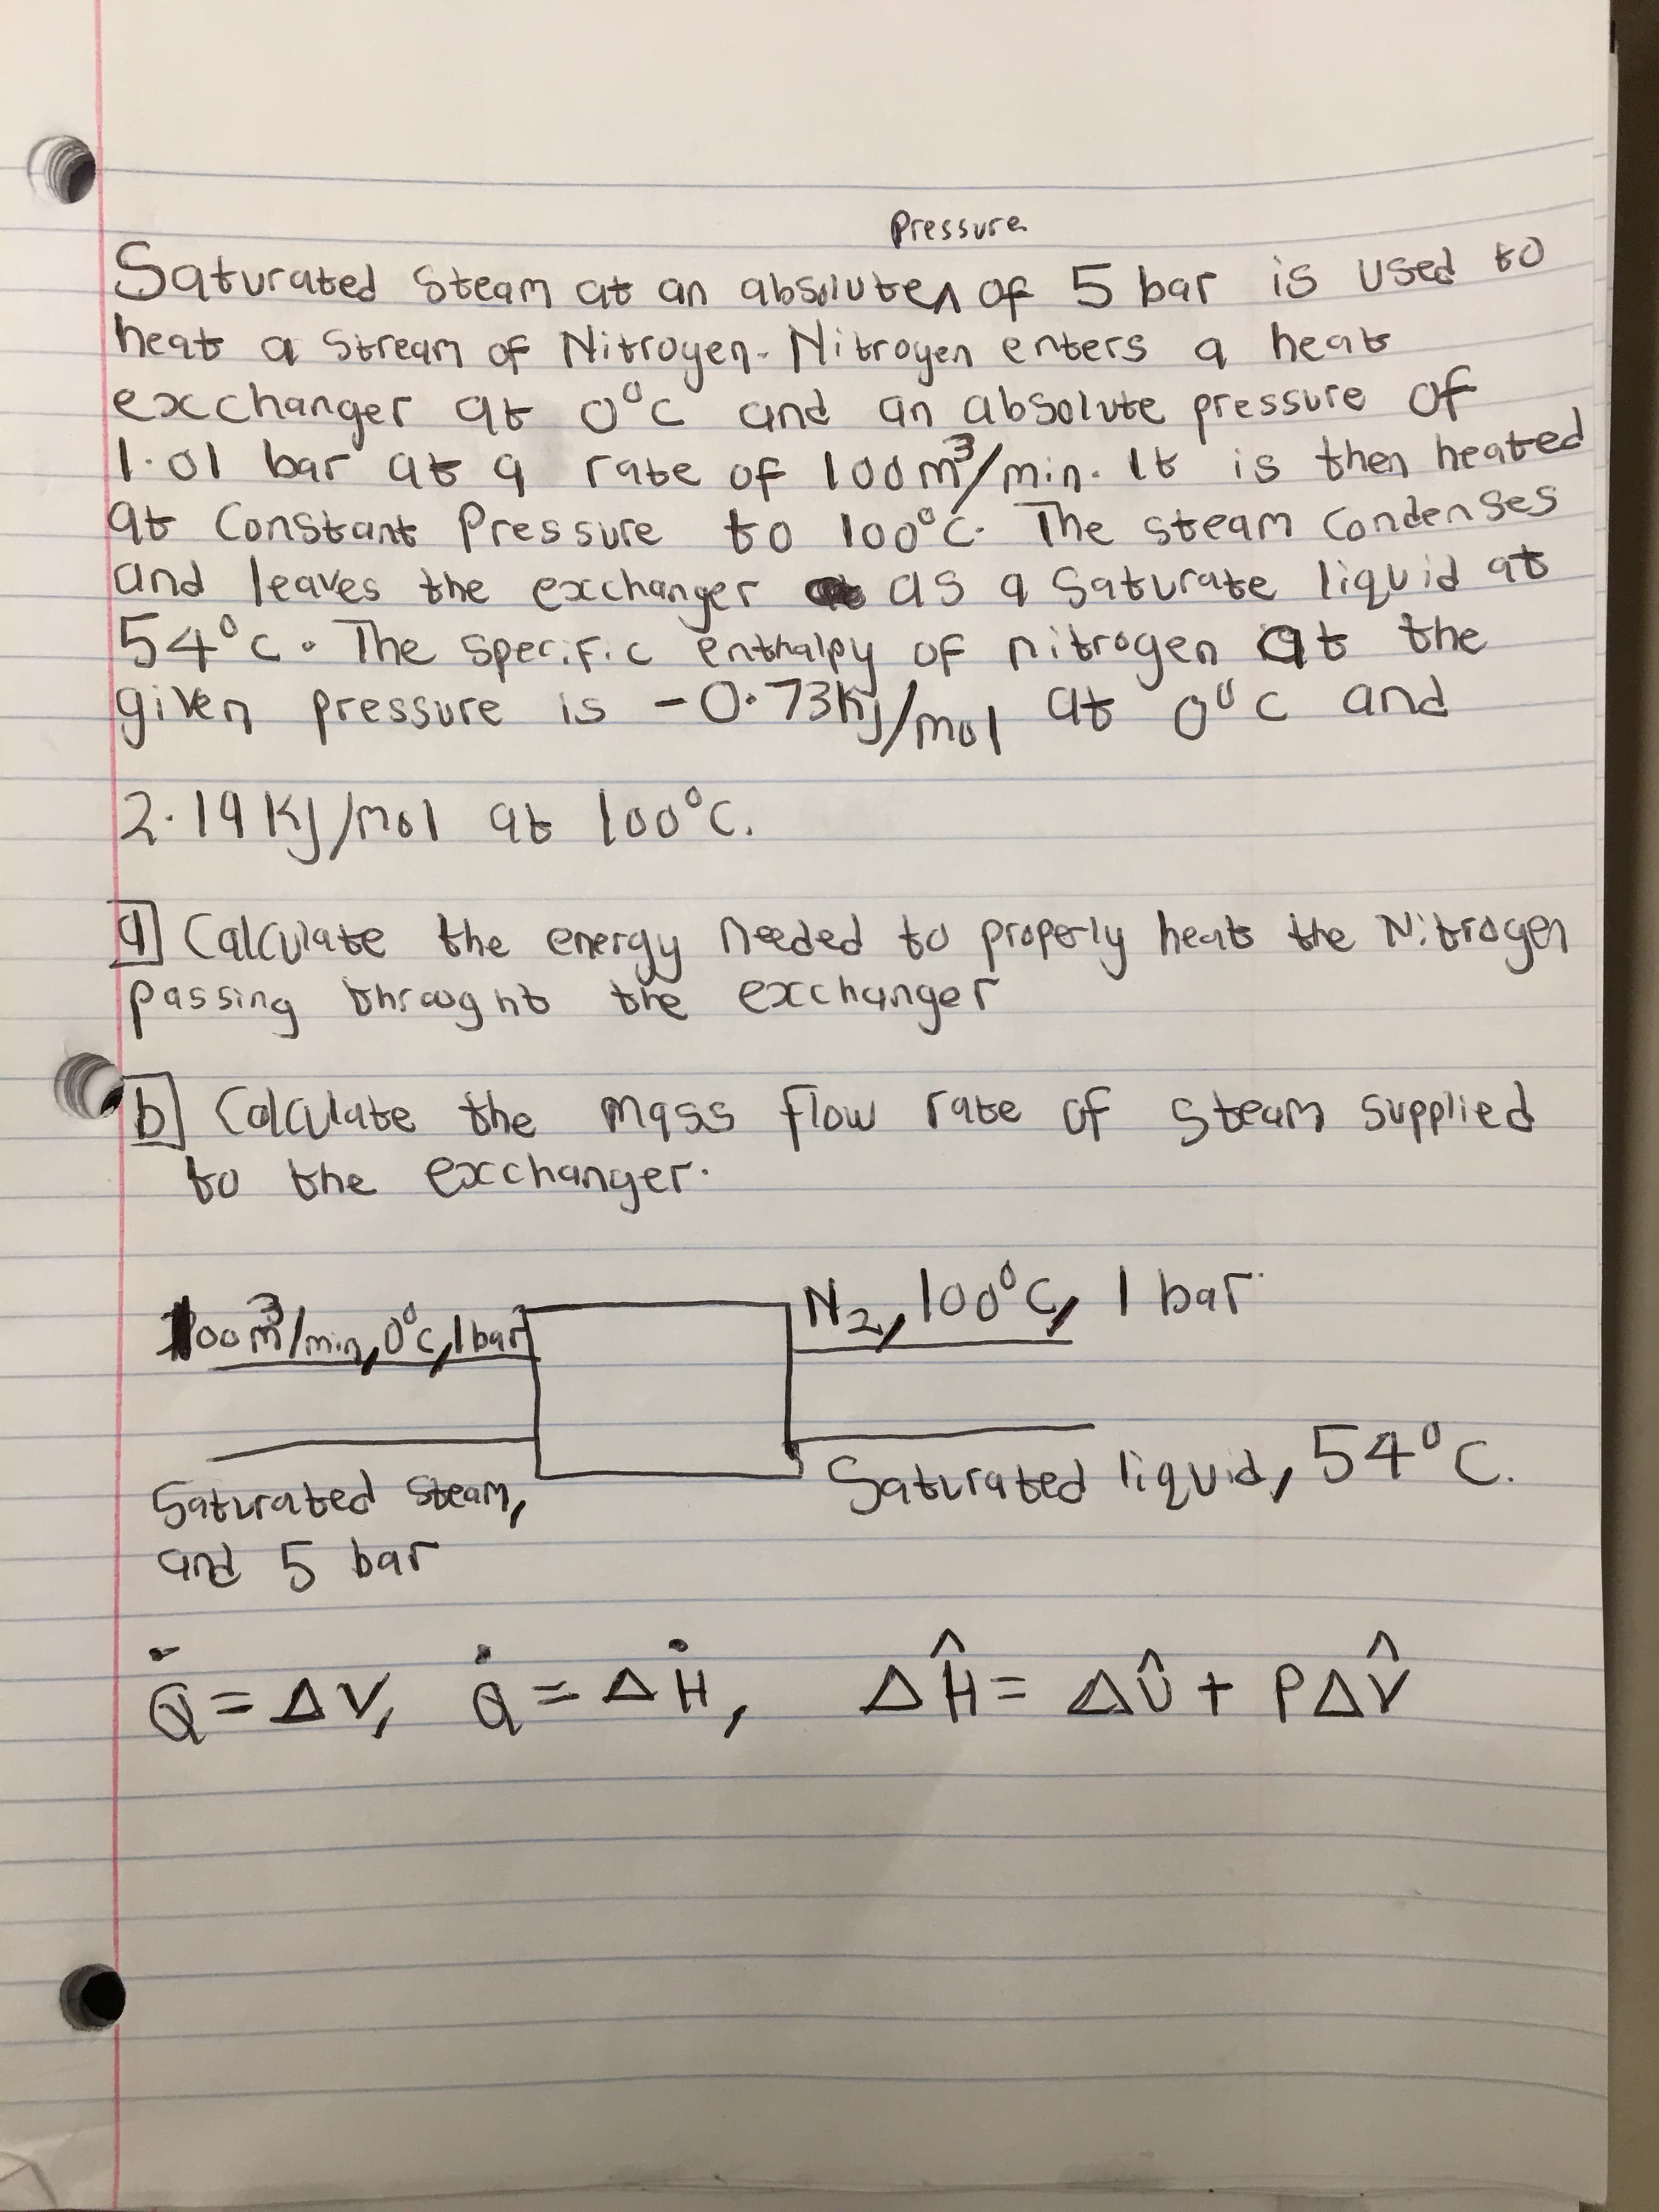 Pressure
Saturated steam at an absolute ʌ of 5 bar is used to
heat a stream of Nitrogen. Nitrogen enters a heat
excchanger at 0°C and an absolute pressure of
1.01 bar at a rate of 100m³/min. It is then heated
at constant Pressure to 100°C. The steam condenses
and leaves the exchanger as a saturate liquid at
54°C. The specific enthalpy of nitrogen at the
given pressure is -0.73KJ/mol at 0°C and
2.19 KJ/mol at 100°C.
a) Calculate the energy needed to properly heat the Nitrogen
passing throught the excchanger
b) Calculate the mass flow rate of steam supplied
to the excchanger.
100m³/min, 0°C, 1bar
N₂, 100°C, 1 bar
Saturated steam,
and 5 bar
Saturated liquid, 54°C.
Q̇ = ΔV, Q̇ = ΔḢ, ΔĤ = ΔÛ + PΔV̂